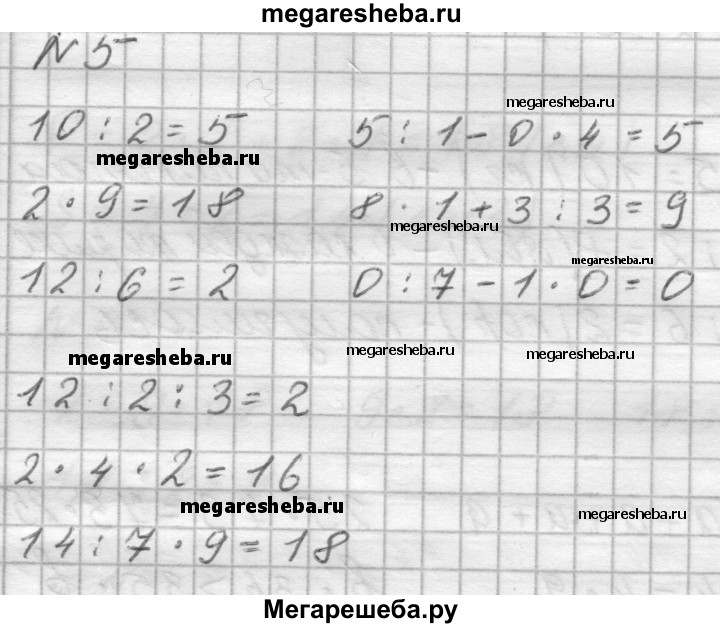 megaresheba.ru
№5
megaresheba.ru
10 : 2 = 5
5 : 1 - 0 · 4 = 5
megaresheba.ru
2 · 9 = 18
8 · 1 + 3 : 3 = 9
megaresheba.ru
megaresheba.ru
12 : 6 = 2
0 : 7 - 1 · 0 = 0
megaresheba.ru
megaresheba.ru
megaresheba.ru
12 : 2 : 3 = 2
2 · 4 · 2 = 16
megaresheba.ru
megaresheba.ru
14 : 7 · 9 = 18
Мегарешеба.ру